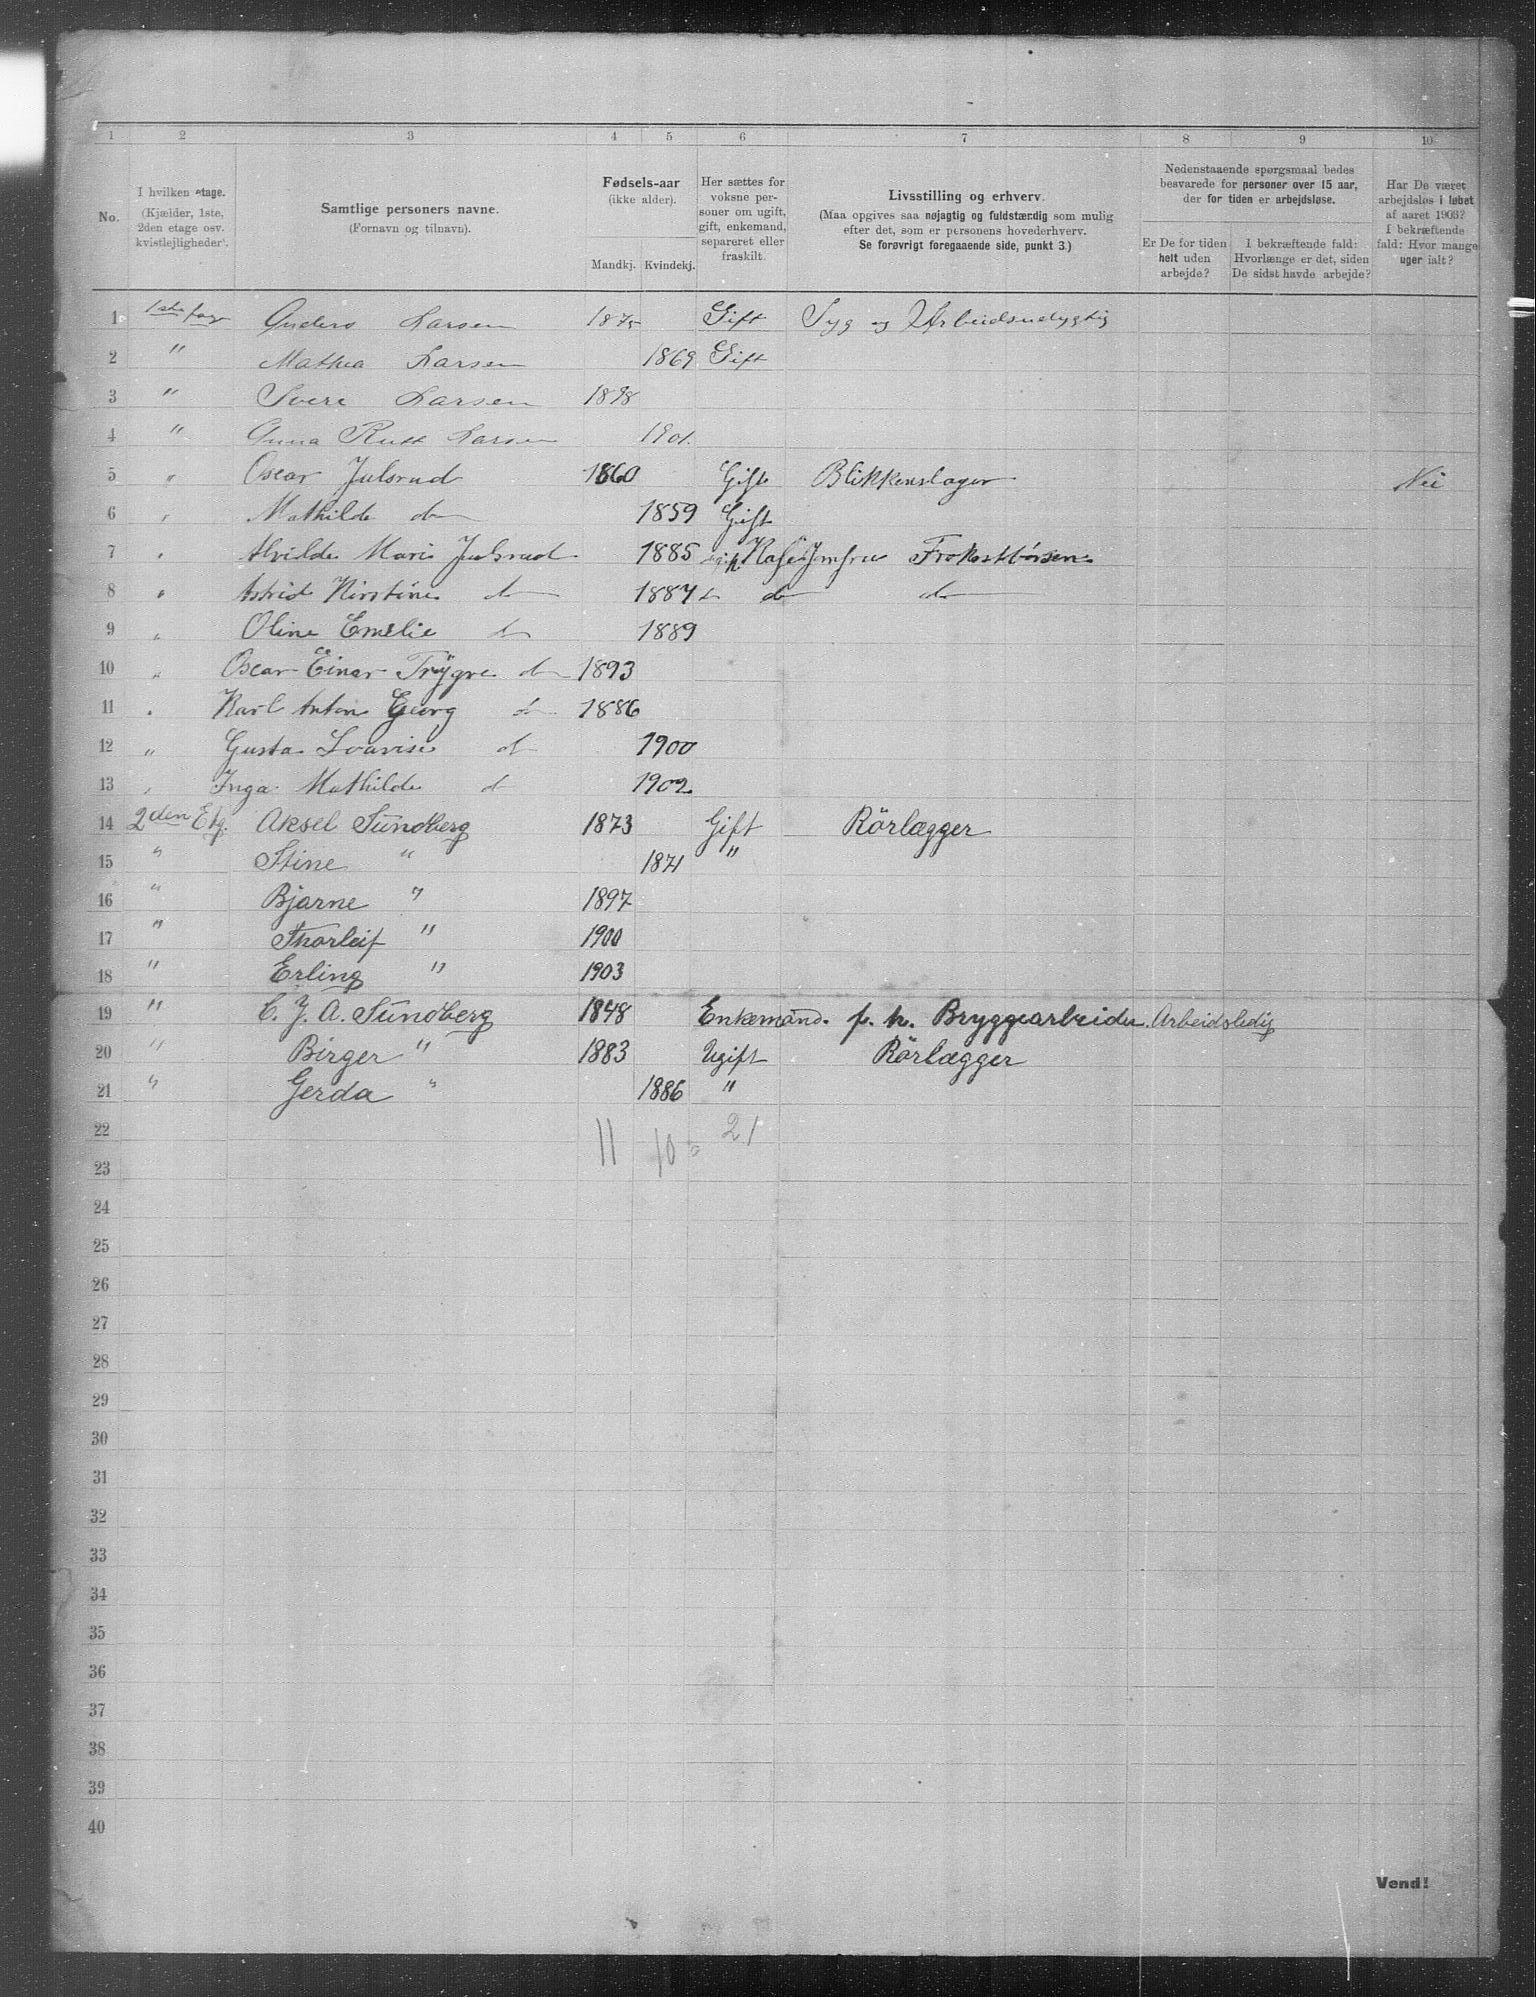 1 2 3 4 5 6 7 8 9 10
No.
I hvilken etage.
(Kjælder, 1ste, 2den etage osv. kvistlejligheder).
Samtlige personers navne.
(Fornavn og tilnavn).
Fødsels-aar
(ikke alder).
Mandkj. Kvindekj.
Her sættes for voksne personer om ugift, gift, enkemand, separeret eller fraskilt.
Livsstilling og erhverv.
(Maa opgives saa nøjagtig og fuldstændig som mulig efter det, som er personens hovederhverv.
Se forøvrigt foregaaende side, punkt 3.)
Nedenstaaende spørgsmaal bedes besvarede for personer over 15 aar, der for tiden er arbejdsløse.
Er De for tiden helt uden arbejde?
I bekræftende fald: Hvorlænge er det, siden De sidst havde arbejde?
Har De været arbejdsløs i løbet af aaret 1903? I bekræftende fald: Hvor mange uger ialt?
1 1ste Anders Larsen 1875 Gift Syg og Arbeidsudygtig
2 " Mathea Larsen 1869 Gift
3 " Svere Larsen 1898
4 " Anna Rutt Larsen 1901.
5 " Oscar Julsrud 1860 Gift Blikkenslager Nei
6 " Mathilde do 1859 Gift
7 " Alvilde Marie Julsrud 1885 ugift Kafejomfru
8 " Astrid Kirstine do 1887 do do do
9 " Oline Emelie do 1889
10 " Oscar Einar Trygve do 1893
11 " Karl Anton Georg do 1886
12 " Gusta Lovise do 1900
13 " Inga Mathilde do 1902
14 2den Etg. Aksel Sundberg 1873 Gift Rörlægger
15 " Stine " 1871 "
16 " Bjarne " 1897
17 " Thorleif " 1900
18 " Erling " 1903
19 " C. J. A. Sundberg 1848 Enkemand. f. h. Bryggearbeider. Arbeidsledig
20 " Birger " 1883 Ugift Rörlægger
21 " Gerda " 1886 "
22 11 10 = 21
23
24
25
26
27
28
29
30
31
32
33
34
35
36
37
38
39
40
Vend!